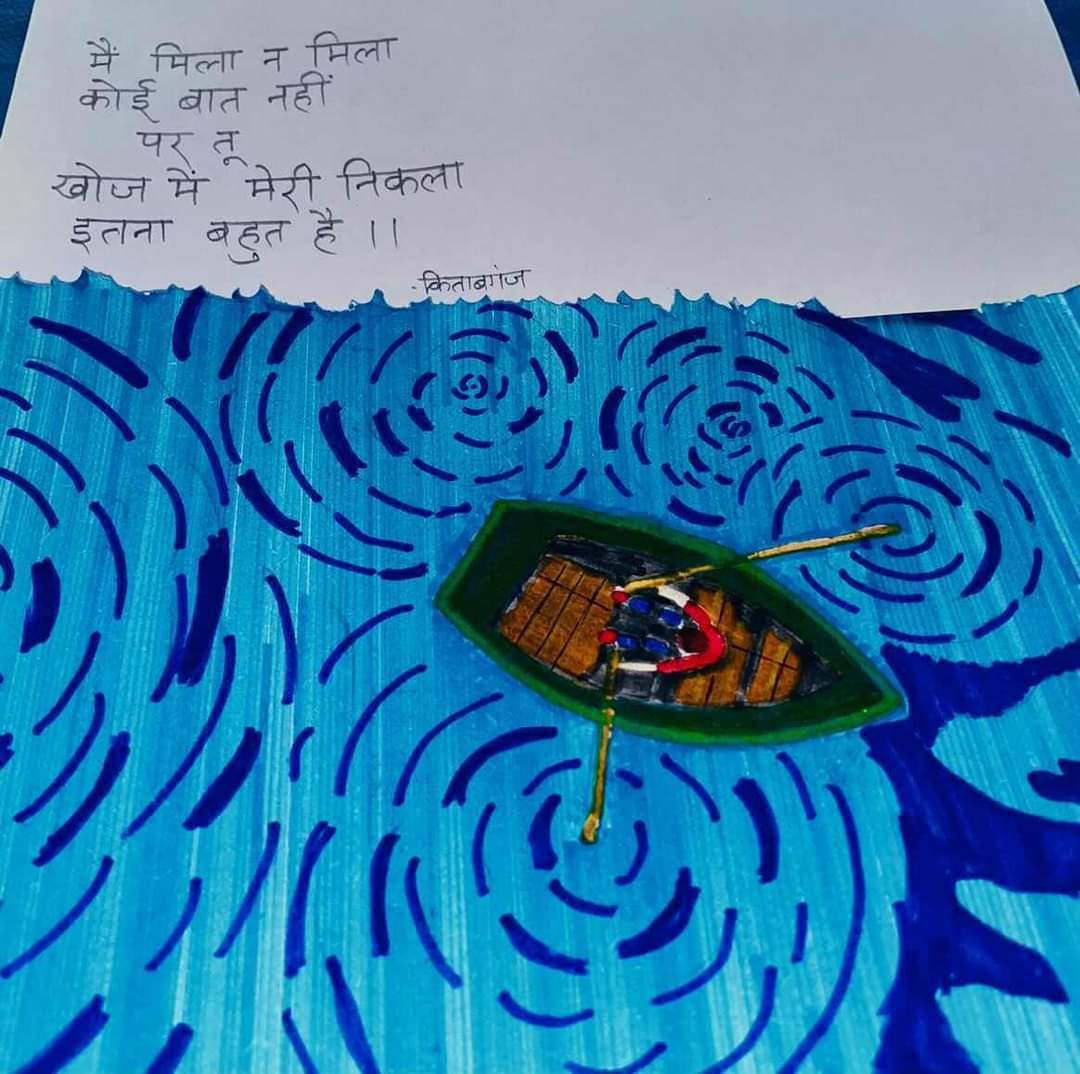 मैं मिला न मिला
कोई बात नहीं
पर तू
खोज में मेरी निकला
इतना बहुत है ।।
-किताबगंज